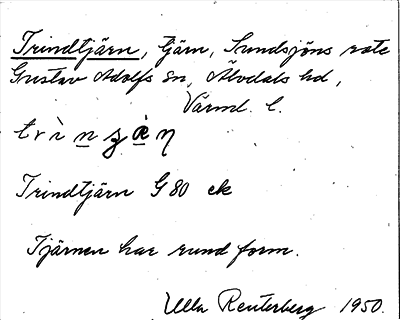 Trindtjärn, tjärn, Sundsjöns rote
Gustav Adolfs sn, Älvdals hd,
Värml. l.
Trindtjärn G 80 ek
Tjärnen har rund form.
Ulla Reuterberg 1950.